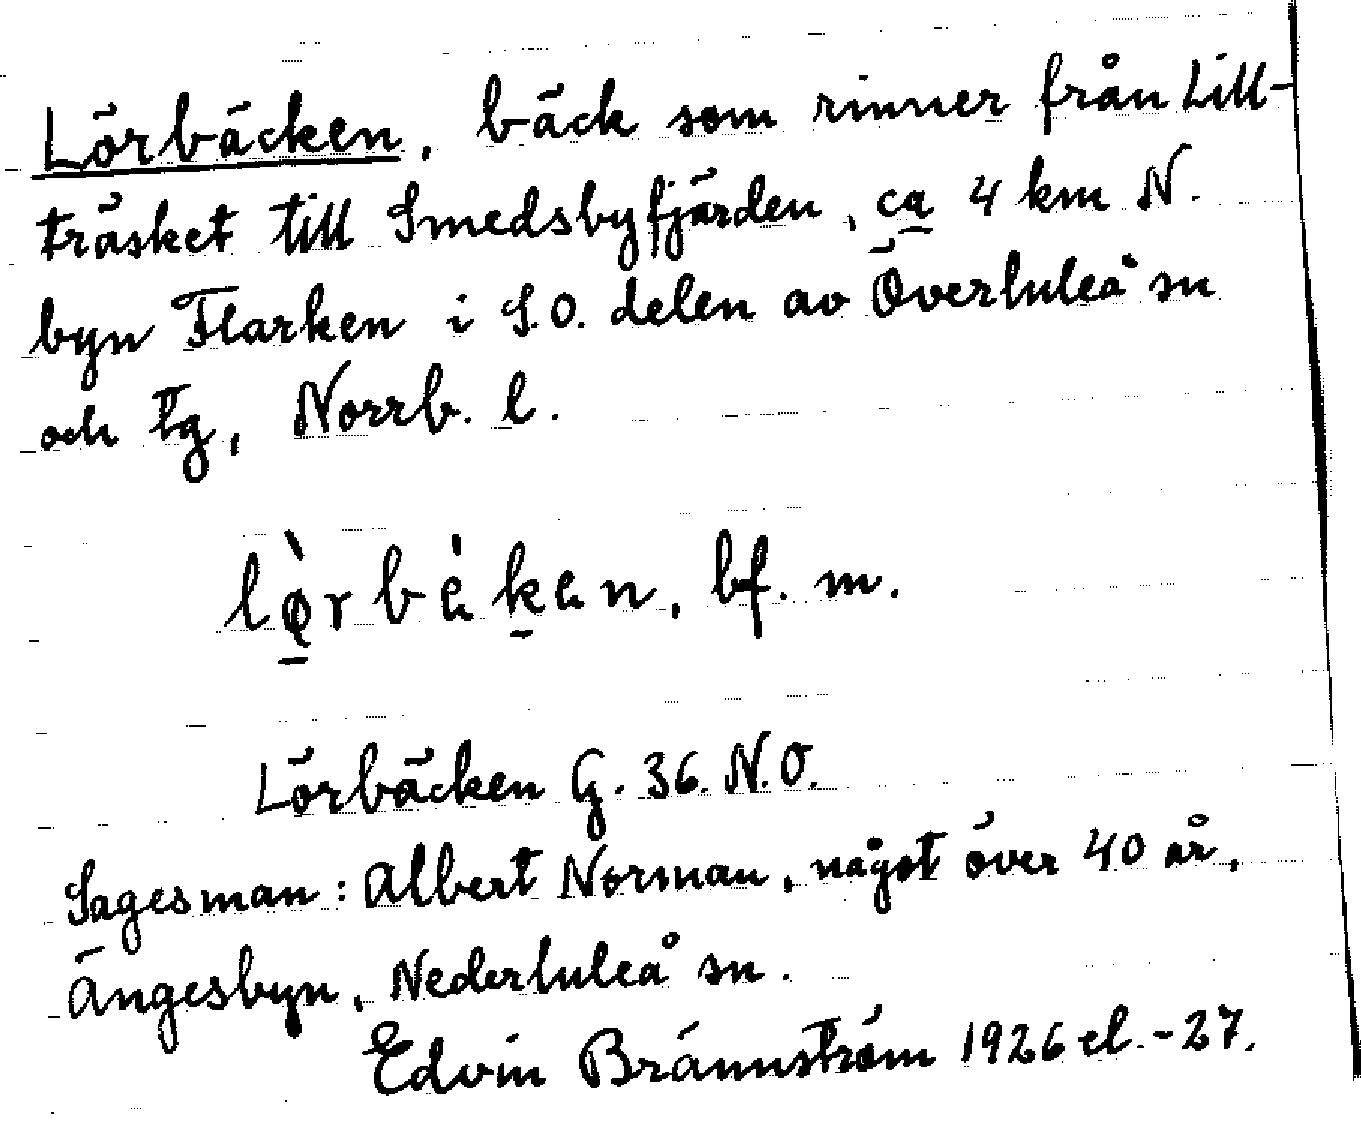 Lörbäcken, bäck som rinner från Lill-
träsket till Smedsbyfjärden, ca 4 km N.
byn Flarken i S.O. delen av Överluleå sn
och tg, Norrb. l.
lø̀rbä̀ken, bf. m.
Lörbäcken G. 36. N.O.
Sagesman: Albert Norman, något över 40 år,
Ängesbyn, Nederluleå sn.
Edvin Brännström 1926 el. -27.